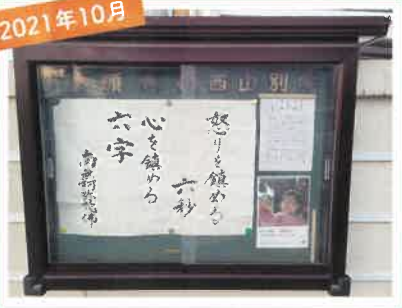 2021年10月
西山別
怒りを鎮める
六秒
心を鎮める
六字
南無阿弥陀佛